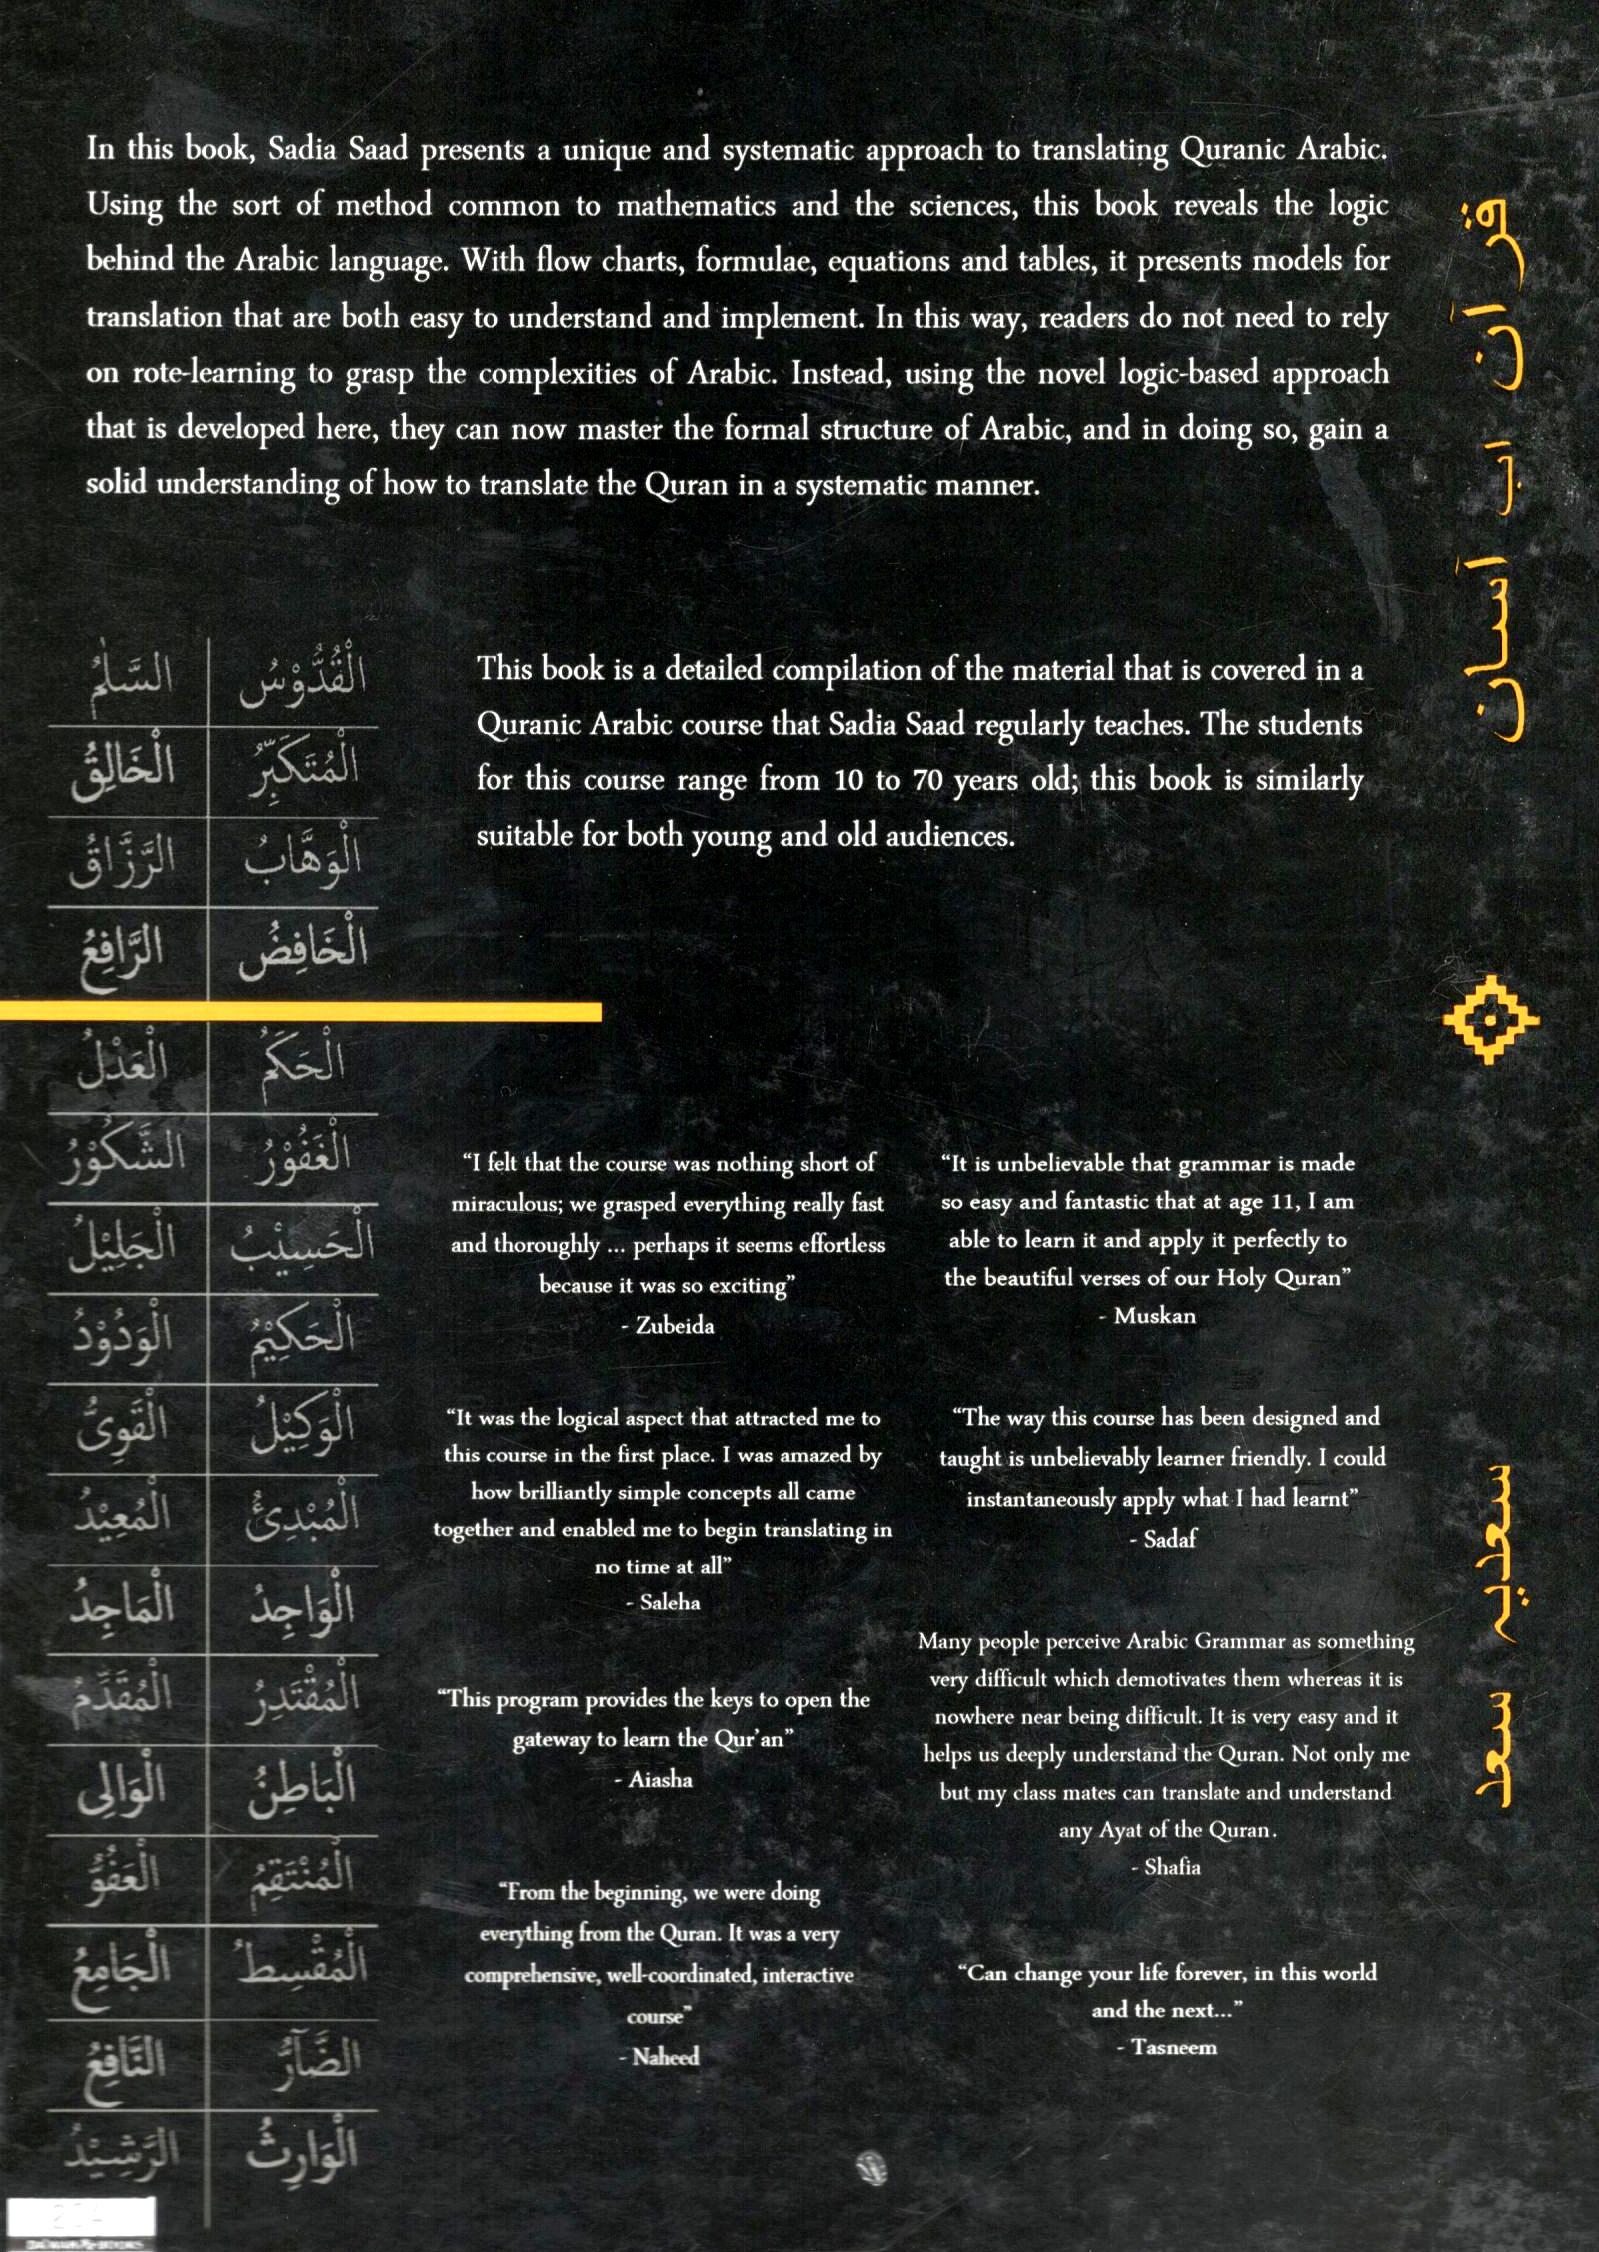 In this book, Sadia Saad presents a unique and systematic approach to translating Quranic Arabic.
Using the sort of method common to mathematics and the sciences, this book reveals the logic
behind the Arabic language. With flow charts, formulae, equations and tables, it presents models for
translation that are both easy to understand and implement. In this way, readers do not need to rely
on rote-learning to grasp the complexities of Arabic. Instead, using the novel logic-based approach
that is developed here, they can now master the formal structure of Arabic, and in doing so, gain a
solid understanding of how to translate the Quran in a systematic manner.
قرآن اب آسان
This book is a detailed compilation of the material that is covered in a
Quranic Arabic course that Sadia Saad regularly teaches. The students
for this course range from 10 to 70 years old; this book is similarly
suitable for both young and old audiences.
الْقُدُّوْسُ السَّلٰمُ
الْمُتَكَبِّرُ الْخَالِقُ
الْوَهَّابُ الرَّزَّاقُ
الْخَافِضُ الرَّافِعُ
الْحَكَمُ الْعَدْلُ
الْغَفُوْرُ الشَّكُوْرُ
الْحَسِيْبُ الْجَلِيْلُ
الْحَكِيْمُ الْوَدُوْدُ
الْوَكِيْلُ الْقَوِىُّ
الْمُبْدِئُ الْمُعِيْدُ
الْوَاجِدُ الْمَاجِدُ
الْمُقْتَدِرُ الْمُقَدِّمُ
الْبَاطِنُ الْوَالِى
الْمُنْتَقِمُ الْعَفُوُّ
الْمُقْسِطُ الْجَامِعُ
الضَّآرُّ النَّافِعُ
الْوَارِثُ الرَّشِيْدُ
“I felt that the course was nothing short of
miraculous; we grasped everything really fast
and thoroughly ... perhaps it seems effortless
because it was so exciting”
- Zubeida
“It was the logical aspect that attracted me to
this course in the first place. I was amazed by
how brilliantly simple concepts all came
together and enabled me to begin translating in
no time at all”
- Saleha
“This program provides the keys to open the
gateway to learn the Qur’an”
- Aiasha
“From the beginning, we were doing
everything from the Quran. It was a very
comprehensive, well-coordinated, interactive
course”
- Naheed
“It is unbelievable that grammar is made
so easy and fantastic that at age 11, I am
able to learn it and apply it perfectly to
the beautiful verses of our Holy Quran”
- Muskan
“The way this course has been designed and
taught is unbelievably learner friendly. I could
instantaneously apply what I had learnt”
- Sadaf
Many people perceive Arabic Grammar as something
very difficult which demotivates them whereas it is
nowhere near being difficult. It is very easy and it
helps us deeply understand the Quran. Not only me
but my class mates can translate and understand
any Ayat of the Quran.
- Shafia
“Can change your life forever, in this world
and the next...”
- Tasneem
سعدیہ سعد